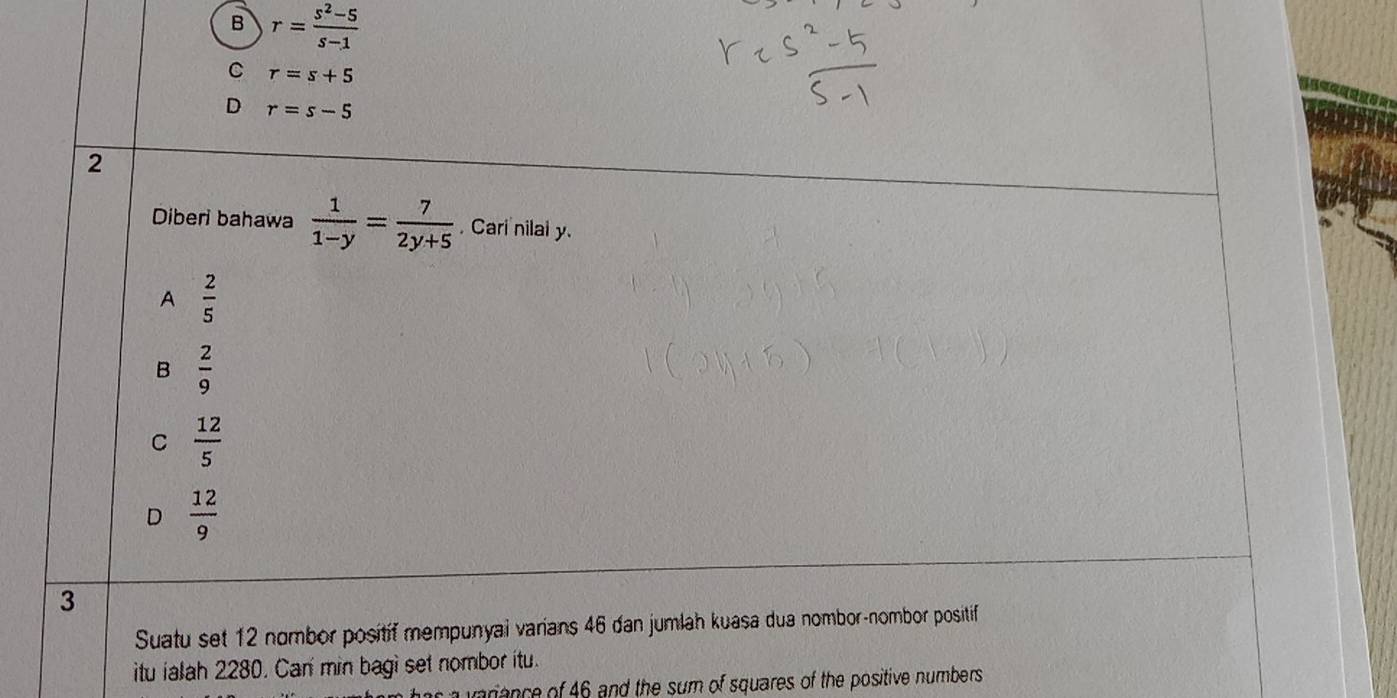 B r = \frac{s^2-5}{s-1}
r = \frac{s^2-5}{s-1}
C r = s + 5
D r = s - 5
2
Diberi bahawa \frac{1}{1-y} = \frac{7}{2y+5} . Cari nilai y.
A \frac{2}{5}
1(2y+5) 7(1-y)
B \frac{2}{9}
C \frac{12}{5}
D \frac{12}{9}
3
Suatu set 12 nombor positif mempunyai varians 46 dan jumlah kuasa dua nombor-nombor positif
itu ialah 2280. Cari min bagi set nombor itu.
has a variance of 46 and the sum of squares of the positive numbers